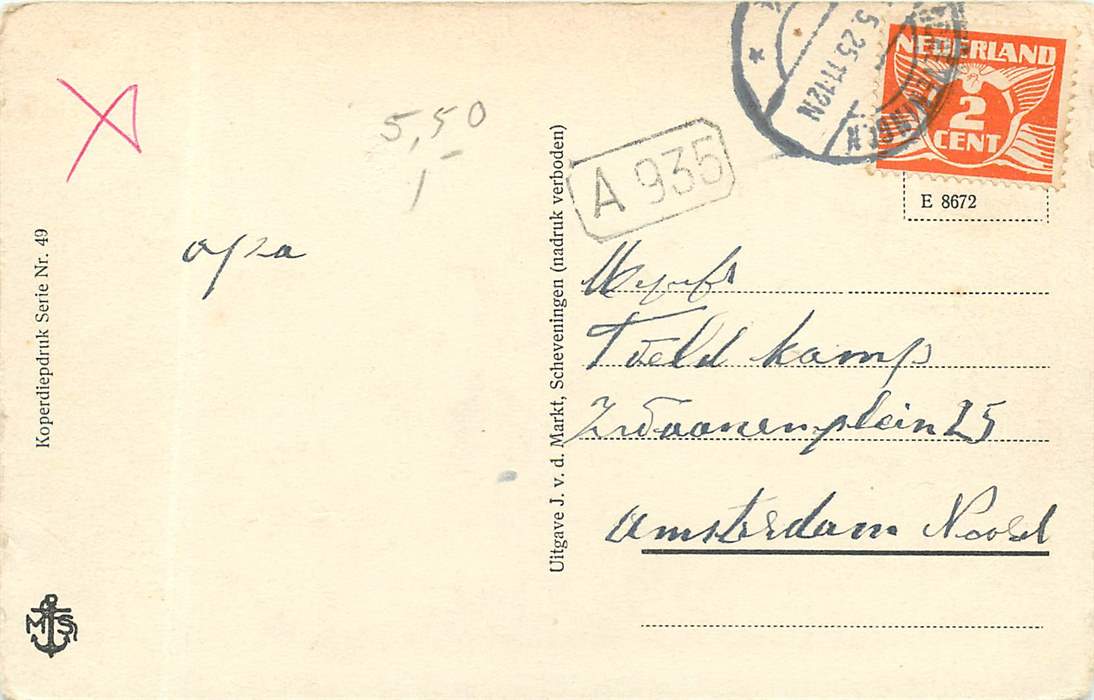 5,50
opa
Koperdiepdruk Serie Nr. 49
MS
Uitgave J. v. d. Markt, Scheveningen (nadruk verboden)
A 935
5.25 11-12N
NEDERLAND
2
CENT
E 8672
Veldkamp
Zwanenplein 25
Amsterdam Noord